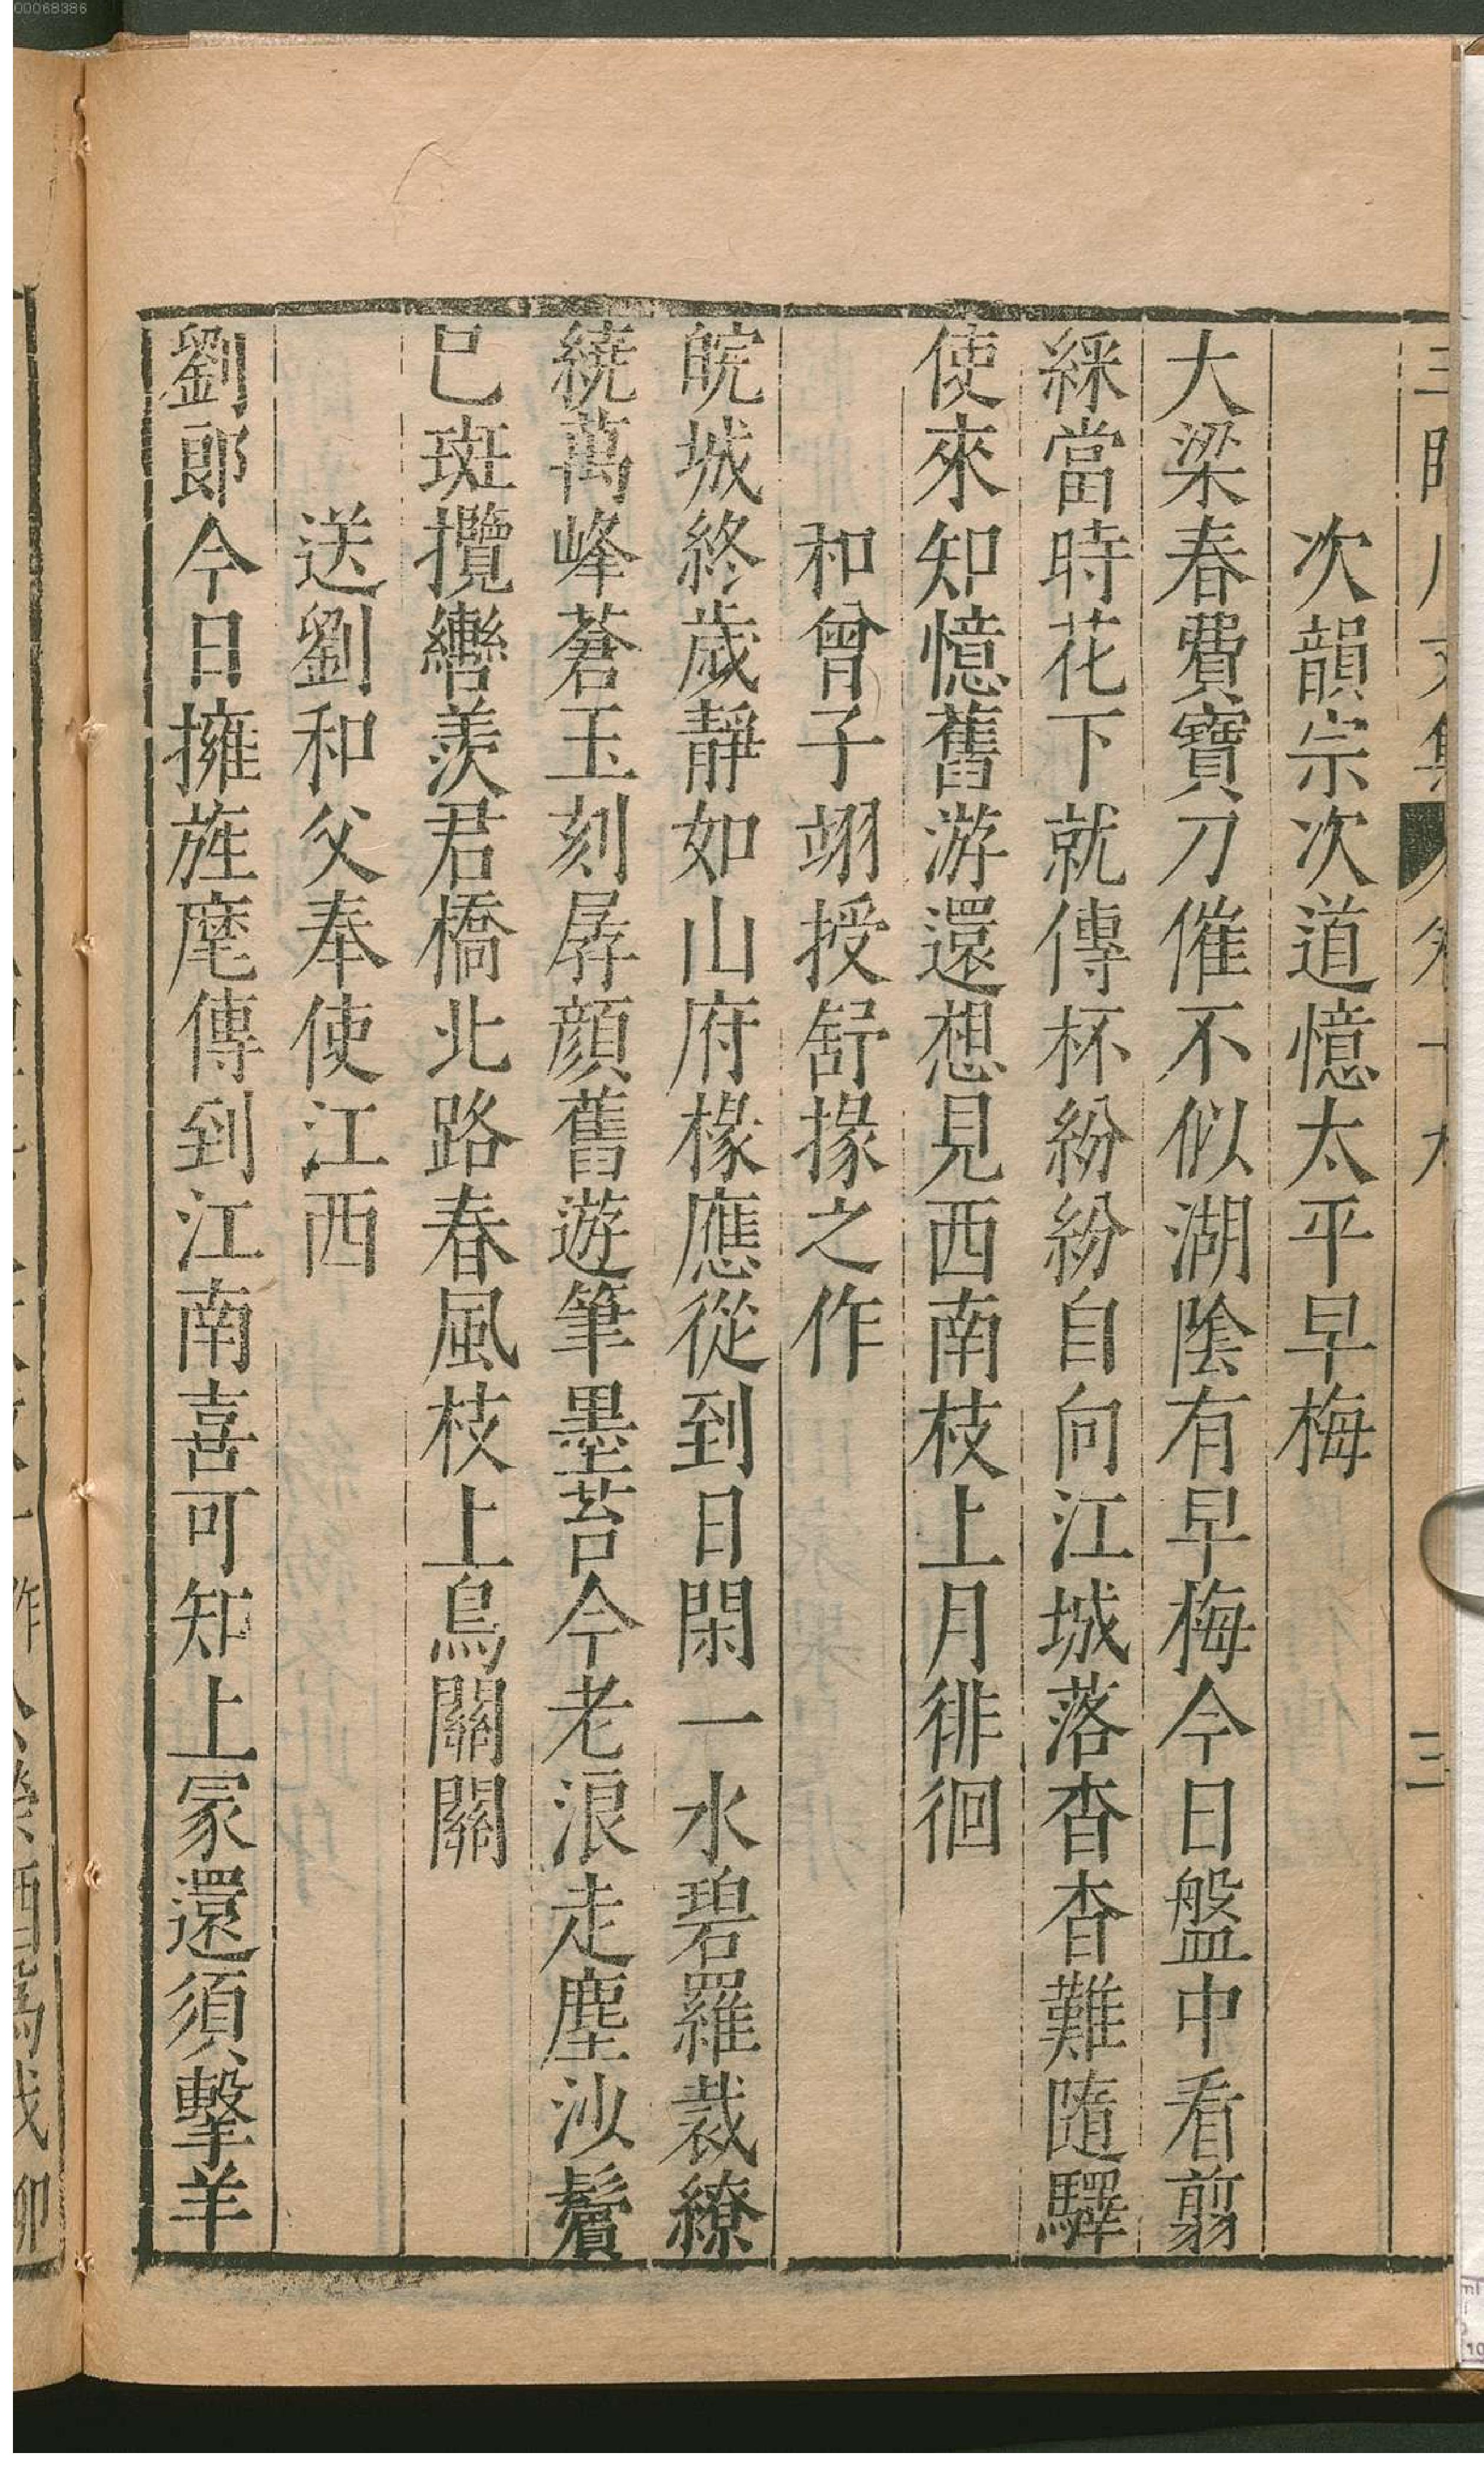 次韻宗次道憶太平早梅
大梁春費寶刀催不似湖陰有早梅今日盤中看翦
綵當時花下就傳杯紛紛自向江城落杳杳難隨驛
使來知憶舊游還想見西南枝上月徘徊
和曾子翊授舒掾之作
皖城終歲靜如山府椽應從到日閑一水碧羅裁繚
繞萬峰蒼玉刻孱顏舊遊筆墨苔今老浪走塵沙鬢
巳斑攬轡羨君橋北路春風枝上鳥關關
送劉和父奉使江西
劉郎今日擁旌麾傳到江南喜可知上冢還須擊羊
00068386